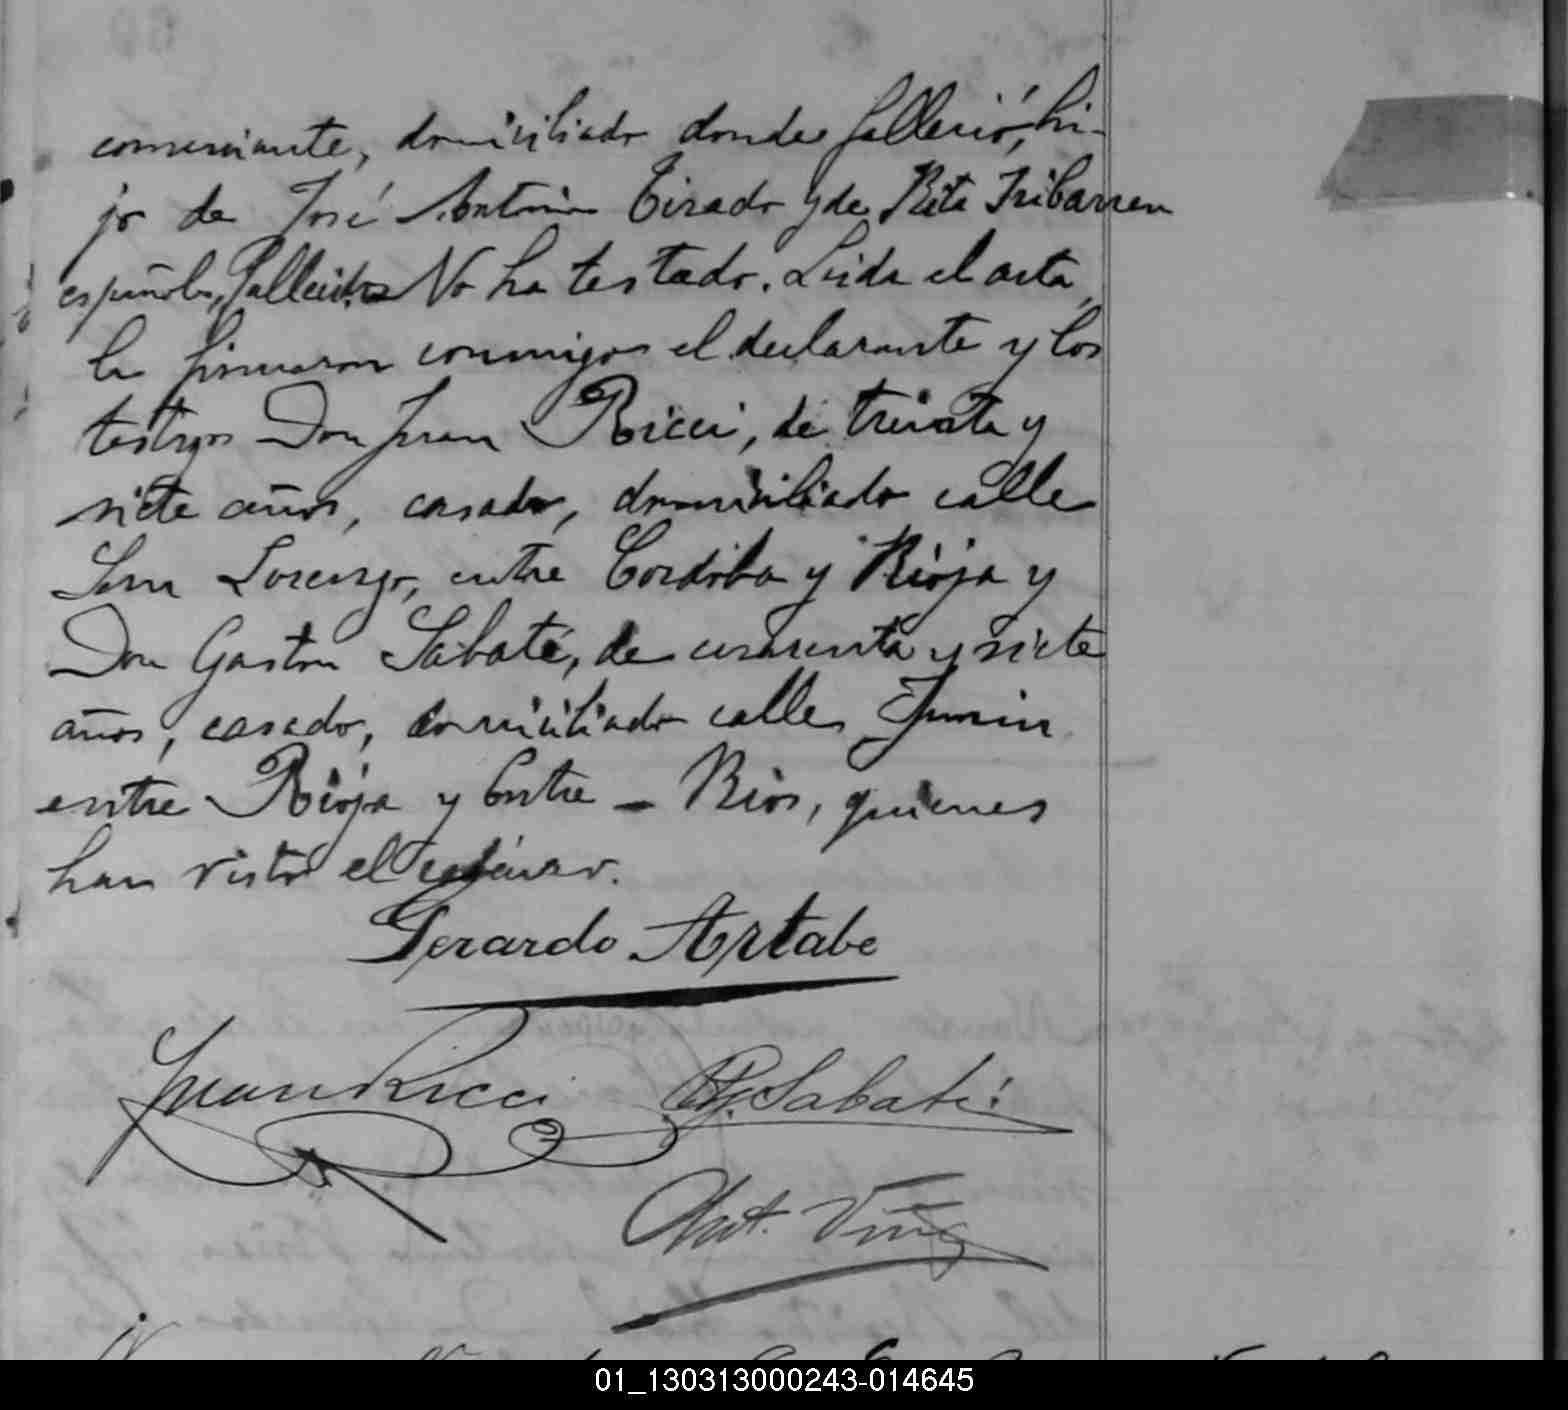 comerciante, domiciliado donde falleció, hi-
jo de José Antonio Tirado y de Rita Iribarren
españoles, fallecidos No ha testado. Leida el acta,
la firmaron conmigo el declarante y los
testigos Don Juan Ricci, de treinta y
siete años, casado, domiciliado calle
San Lorenzo, entre Cordoba y Rioja y
Don Gaston Sabaté, de cuarenta y siete
años, casado, domiciliado calle Junin
entre Rioja y Entre - Rios, quienes
han visto el cadáver.
Gerardo Artabe
Juan Ricci G. Sabaté
Nat.
01_130313000243-014645